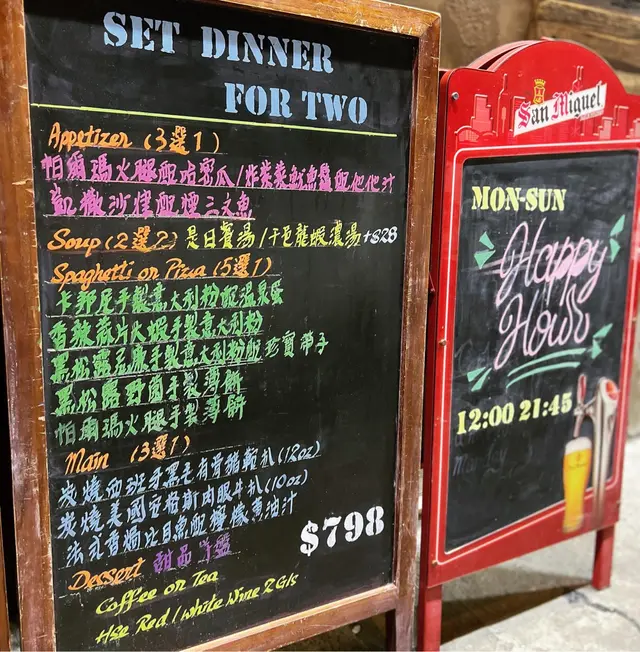 SET DINNER
FOR TWO
Appetizer (3選1)
帕爾瑪火腿配哈密瓜/炸釀魷魚鬚配他他汁
凱撒沙律配煙三文魚
Soup (2選2) 是日餐湯/干邑龍蝦濃湯+$28
Spaghetti or Pizza (5選1)
卡邦尼手製意大利粉配溫泉蛋
香辣蒜片火蝦手製意大利粉
黑松露忌廉手製意大利粉配珍寶帶子
黑松露野菌手製薄餅
帕爾瑪火腿手製薄餅
Main (3選1)
炭燒西班牙黑毛有骨豬鞍扒(12oz)
炭燒美國安格斯肉眼牛扒(10oz)
法式香煎比目魚配檸檬蔥油汁
$798
Dessert 甜品拼盤
Coffee or Tea
Hse Red/White Wine 2 Gls
San Miguel
MON-SUN
Happy
Hour
12:00 21:45